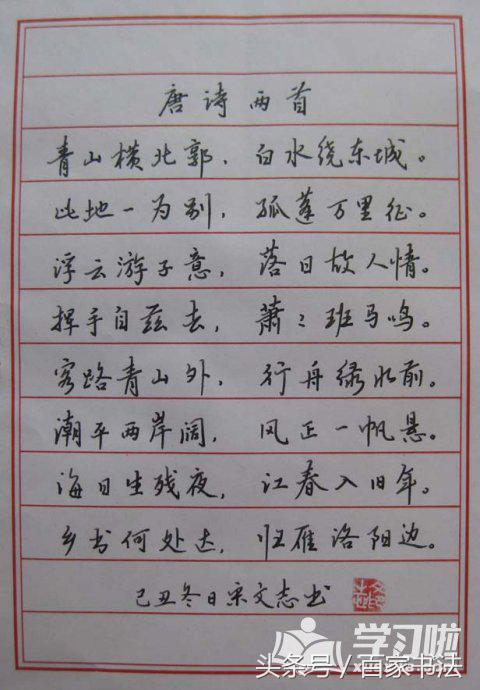 唐诗两首
青山横北郭，白水绕东城。
此地一为别，孤蓬万里征。
浮云游子意，落日故人情。
挥手自兹去，萧々班马鸣。
客路青山外，行舟绿水前。
潮平两岸阔，风正一帆悬。
海日生残夜，江春入旧年。
乡书何处达，归雁洛阳边。
己丑冬日宋文志书
学习啦
头条号/百家书法